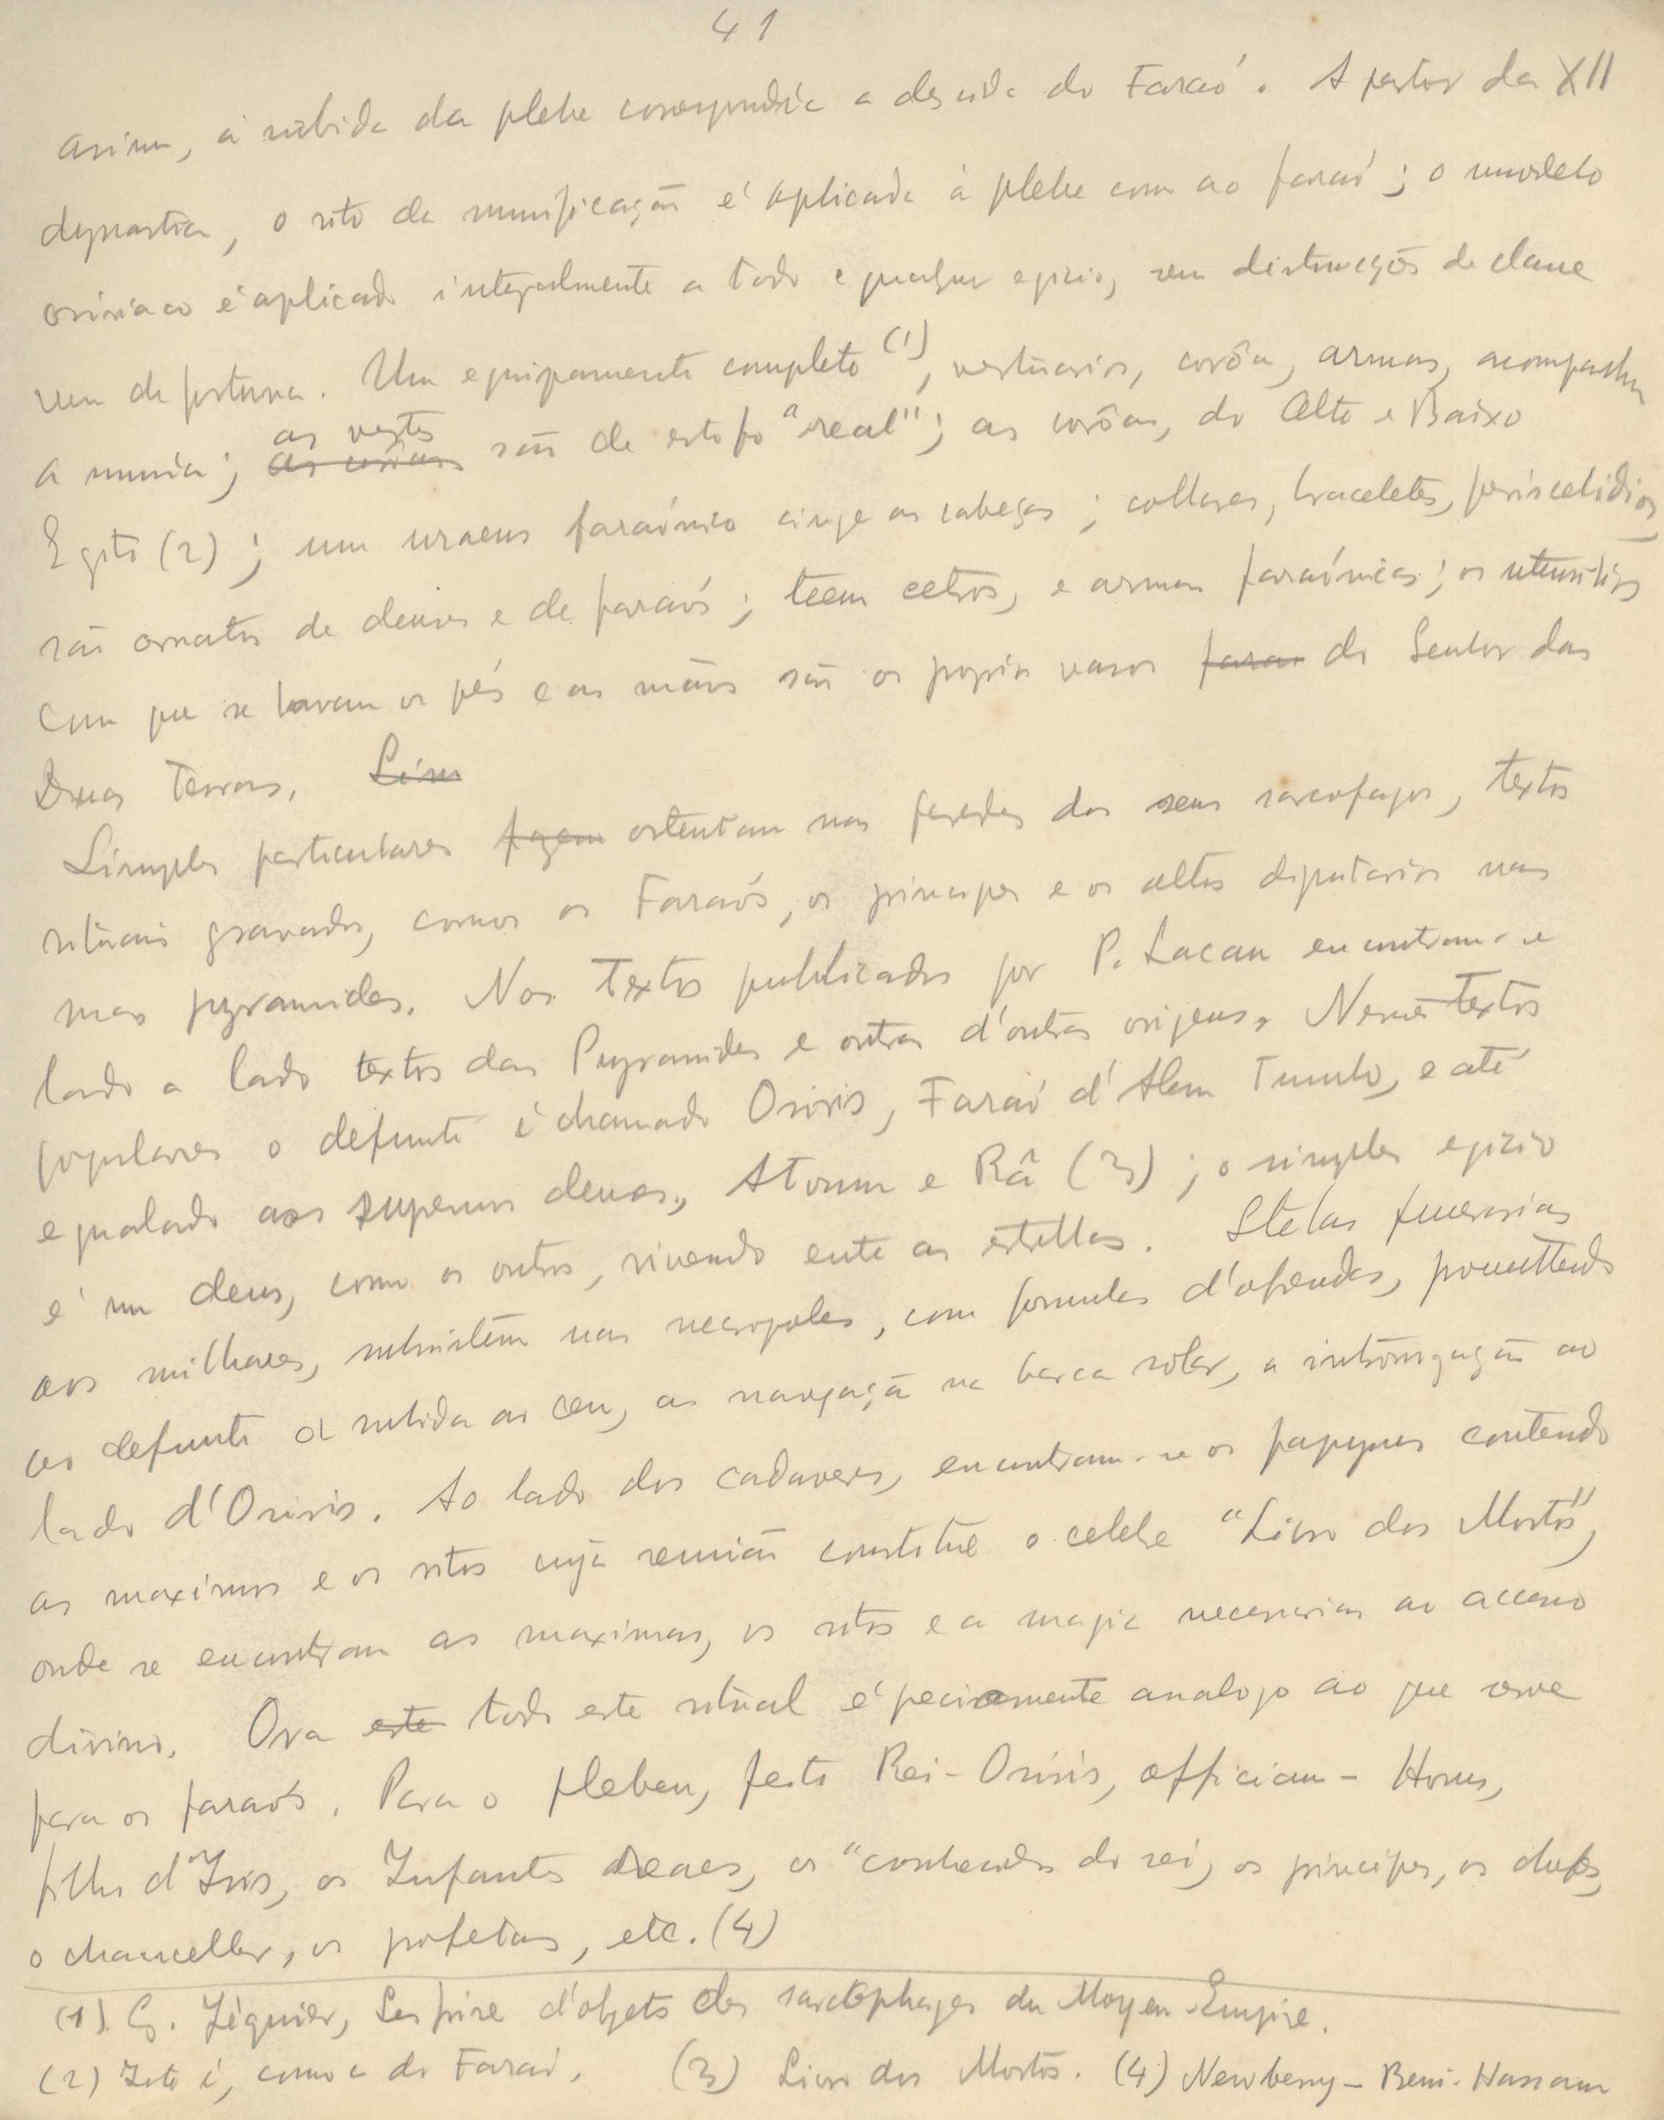 41
assim, á subida da plebe correspondia a descida do Faraó. A partir da XII
dynastia, o rito da mumificação é aplicado á plebe como ao faraó; o modelo
osiriaco é aplicado integralmente a todo e qualquer egicio, sem distincções de classe
nem de fortuna. Um equipamento completo (1), vestuarios, corôa, armas, acompanha
a mumia; as vestes são de estofo "real"; as corôas, do Alto e Baixo
Egito (2); um uraeus faraónico cinge as cabeças; collares, braceletes, periscelidios,
são ornatos de deuses e de faraós; teem cetros, e armas faraónicas; os utensilios
com que se lavam os pés e as mãos são os proprios vasos do Senhor das
Duas Terras.
Simples particulares ostentam nas paredes dos seus sarcofagos, textos
rituais gravados, como os Faraós, os principes e os altos dignatarios nas
suas pyramides. Nos Textos publicados por P. Lacau encontram-se
lado a lado textos das Pyramides e outros d'outras origens. Nesses textos
populares o defunto é chamado Osiris, Faraó d'Alem Tumulo, e até
egualado aos supremos deuses, Atoum e Râ (3); o simples egicio
é um deus, como os outros, vivendo entre as estrellas. Stelas funerarias
aos milhares, subsistem nas necropoles, com formulas d'ofrendas, promettendo
ao defunto a subida ao ceu, a navegação na barca solar, a intronização ao
lado d'Osiris. Ao lado dos cadaveres, encontram-se os papyrus contendo
as maximas e os ritos cuja reunião constitue o celebre "Livro dos Mortos",
onde se encontram as maximas, os ritos e a magia necessarios ao accesso
divino. Ora todo este ritual é precisamente analogo ao que serve
para os faraós. Para o plebeu, feito Rei-Osiris, officiam - Horus,
filho d'Isis, os Infantes Reaes, os "conhecidos do rei, os principes, os chefes,
o chanceller, os profetas, etc. (4)
(1) G. Jéquier, Les frise d'objets des sarcophages du Moyen-Empire.
(2) Isto é, como a do Faraó. (3) Livro dos Mortos. (4) Newberry - Beni-Hassam